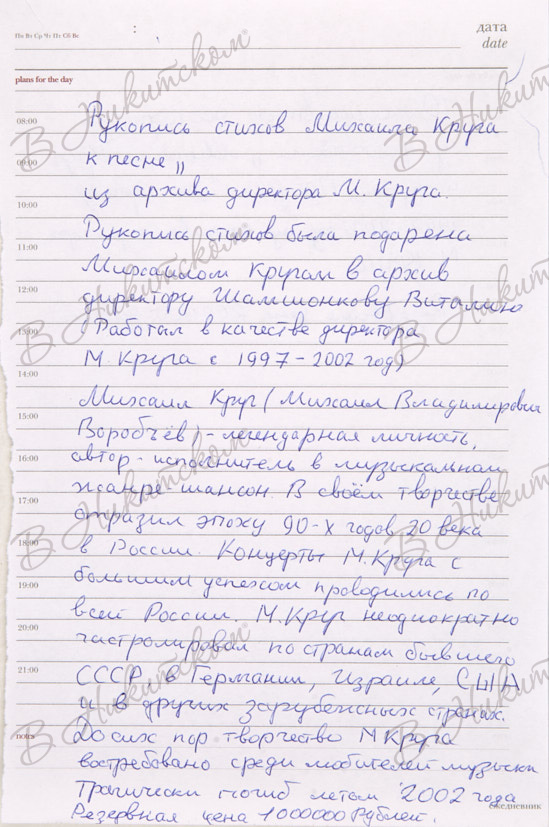 Пн Вт Ср Чт Пт Сб Вс
дата
date
plans for the day
08:00
Рукопись стихов Михаила Круга
09:00
к песне „
из архива директора М. Круга.
10:00
Рукопись стихов была подарена
11:00
Михаилом Кругом в архив
12:00
директору Шамшонкову Виталию
13:00
(Работал в качестве директора
М. Круга с 1997 - 2002 год)
14:00
Михаил Круг (Михаил Владимирович
15:00
Воробчёв) - легендарная личность,
16:00
автор - исполнитель в музыкальном
17:00
жанре шансон. В своём творчестве
отразил эпоху 90-х годов 20 века
18:00
в России. Концерты М. Круга с
19:00
большим успехом проводились по
всей России. М. Круг неоднократно
20:00
гастролировал по странам бывшего
21:00
СССР, в Германии, Израиле, США
и в других зарубежных странах.
notes
До сих пор творчество М Круга
востребовано среди любителей музыки
Трагически погиб летом 2002 года
ежедневник
Резервная цена 1000000 Рублей.
В Никитском®